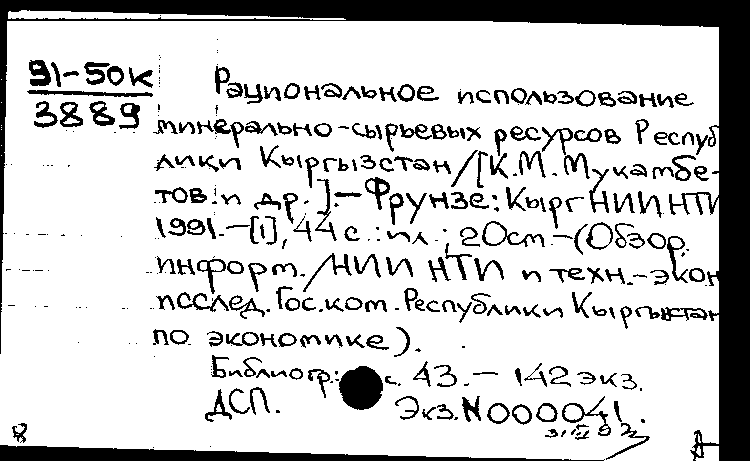 91-50к
3889
Рациональное использование
минерально-сырьевых ресурсов Респуб
лики Кыргызстан/[К.М. Мукамбе-
тов и др.].-Фрунзе: КыргНИИНТИ
1991.-[1], 44 с.: ил.; 20 см.-(Обзор.
информ./НИИ НТИ и техн.-экон
исслед. Гос. ком. Республики Кыргызстан
по экономике).
Библиогр.: с. 43.- 142 экз.
ДСП. Экз.N000041.
8